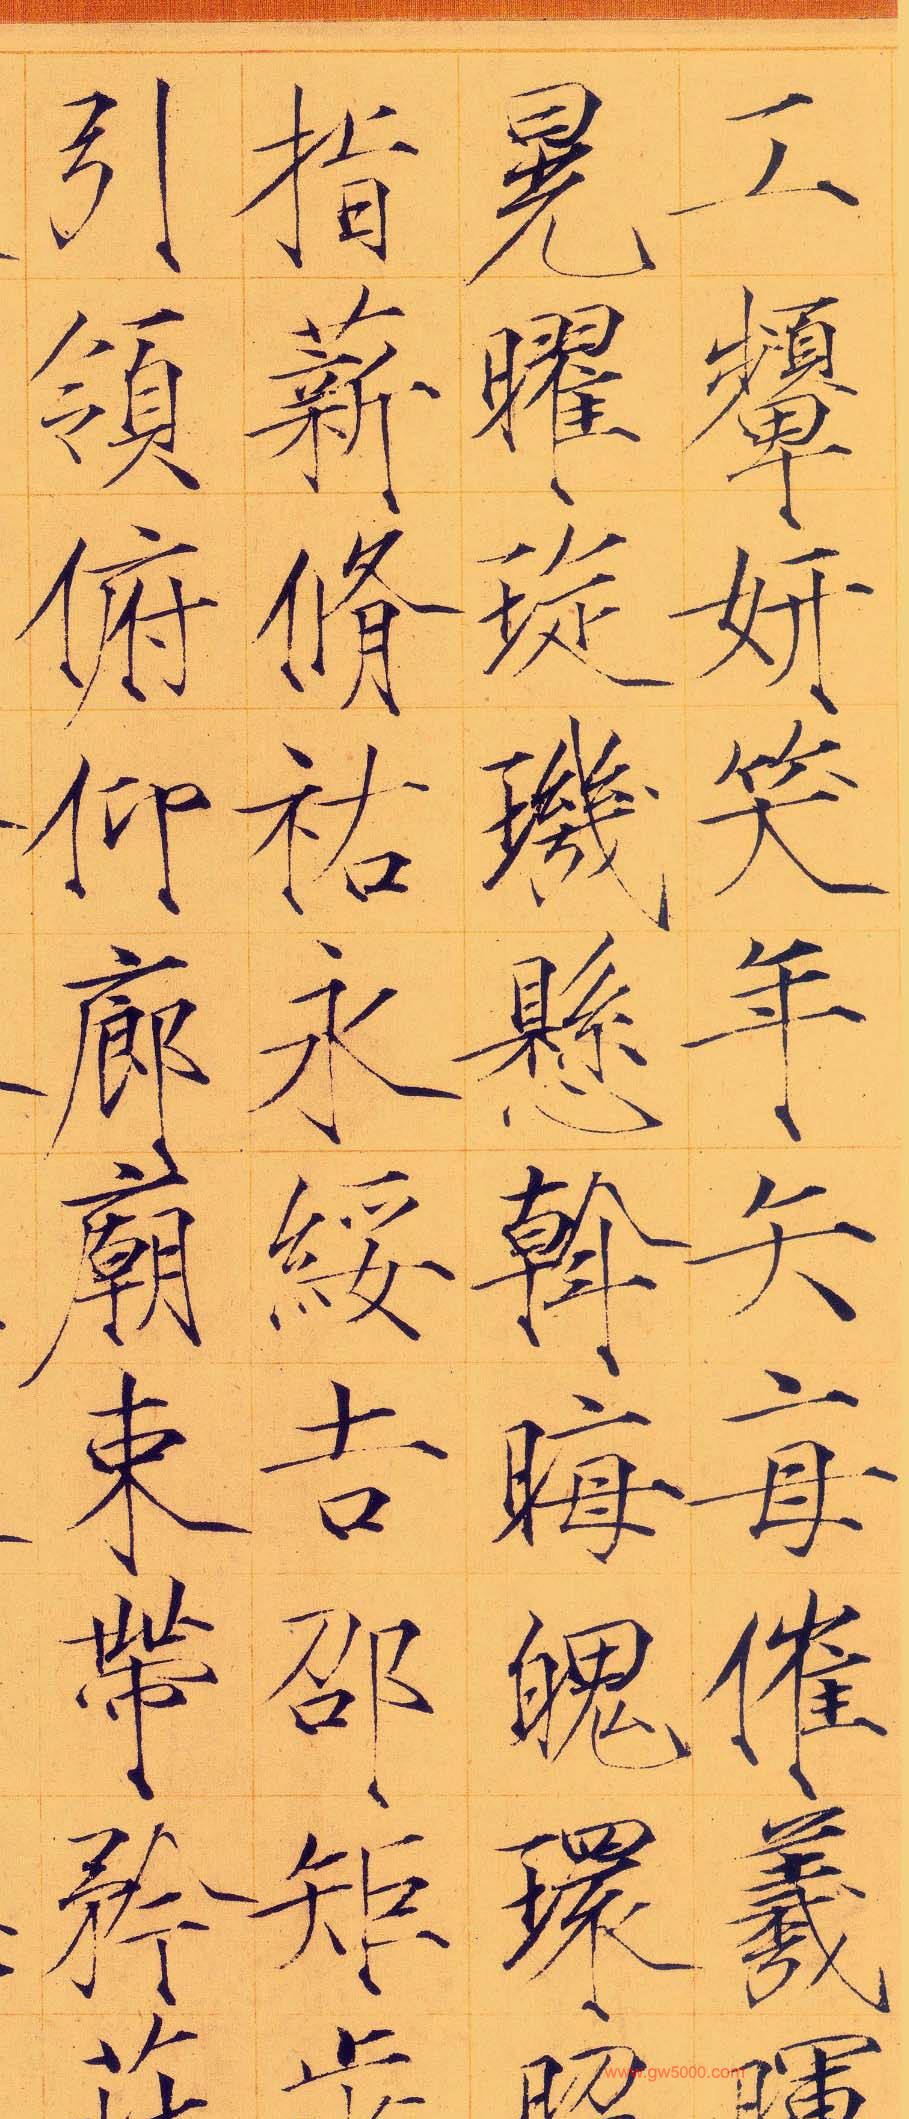 工顰妍笑年矢每催羲暉
晃曜琁璣懸斡晦魄環照
指薪脩祜永綏吉邵矩步
引領俯仰廊廟束帶矜莊
www.gw5000.com